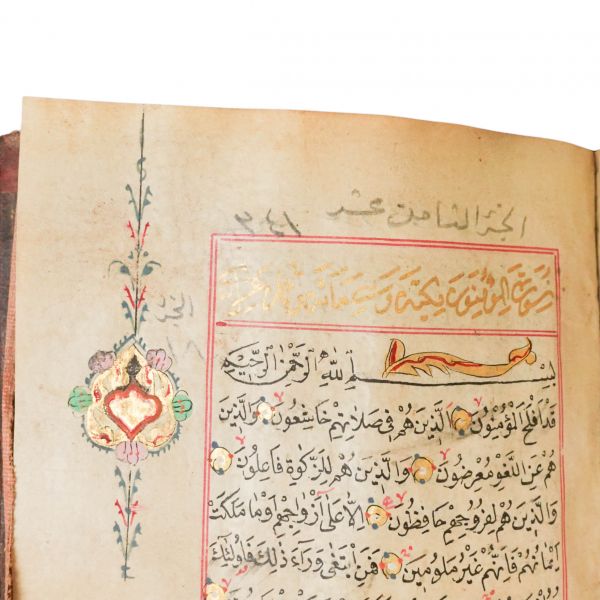 الجزء الثامن عشر ٣٤١
سورة المؤمنون مكية وهى مائة
الجزء
١٨
بِسْمِ اللهِ الرَّحْمٰنِ الرَّحِيمِ
قَدْ اَفْلَحَ الْمُؤْمِنُونَ الَّذِينَ هُمْ فِى صَلَاتِهِمْ خَاشِعُونَ وَالَّذِينَ
هُمْ عَنِ اللَّغْوِ مُعْرِضُونَ وَالَّذِينَ هُمْ لِلزَّكٰوةِ فَاعِلُونَ
وَالَّذِينَ هُمْ لِفُرُوجِهِمْ حَافِظُونَ اِلَّا عَلٰى اَزْوَاجِهِمْ وَمَا مَلَكَتْ
اَيْمَانُهُمْ فَاِنَّهُمْ غَيْرُ مَلُومِينَ فَمَنِ ابْتَغٰى وَرَاءَ ذٰلِكَ فَاُولٰئِكَ